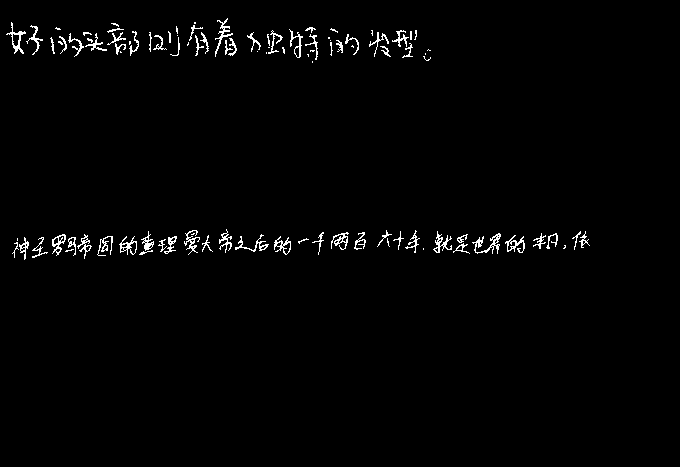 好的头部则有着独特的发型。
神圣罗马帝国的查理曼大帝之后的一千两百六十年,就是世界的末日,依